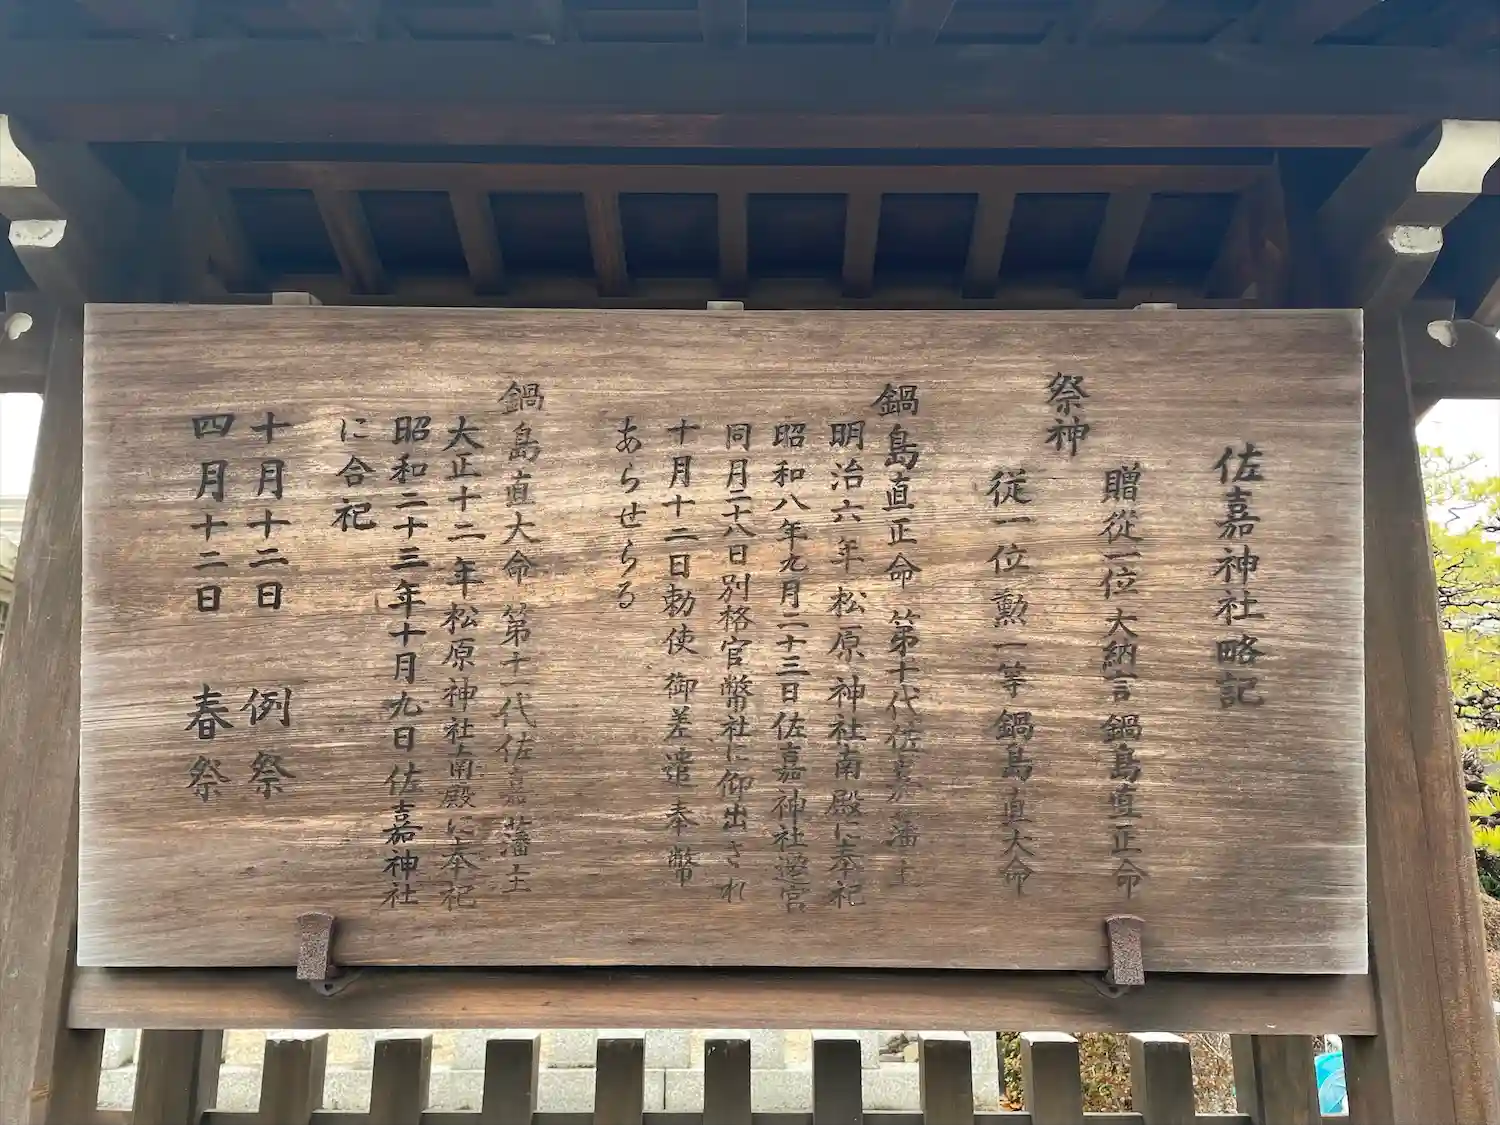 佐嘉神社略記
祭神
贈従一位大納言鍋島直正命
従一位勲一等鍋島直大命
鍋島直正命 第十代佐嘉藩主
明治六年松原神社南殿に奉祀
昭和八年九月二十三日佐嘉神社遷宮
同月二十八日別格官幣社に仰出され
十月十二日勅使御差遣奉幣
あらせらる
鍋島直大命 第十一代佐嘉藩主
大正十二年松原神社南殿に奉祀
昭和二十三年十月九日佐嘉神社
に合祀
十月十二日 例祭
四月十二日 春祭